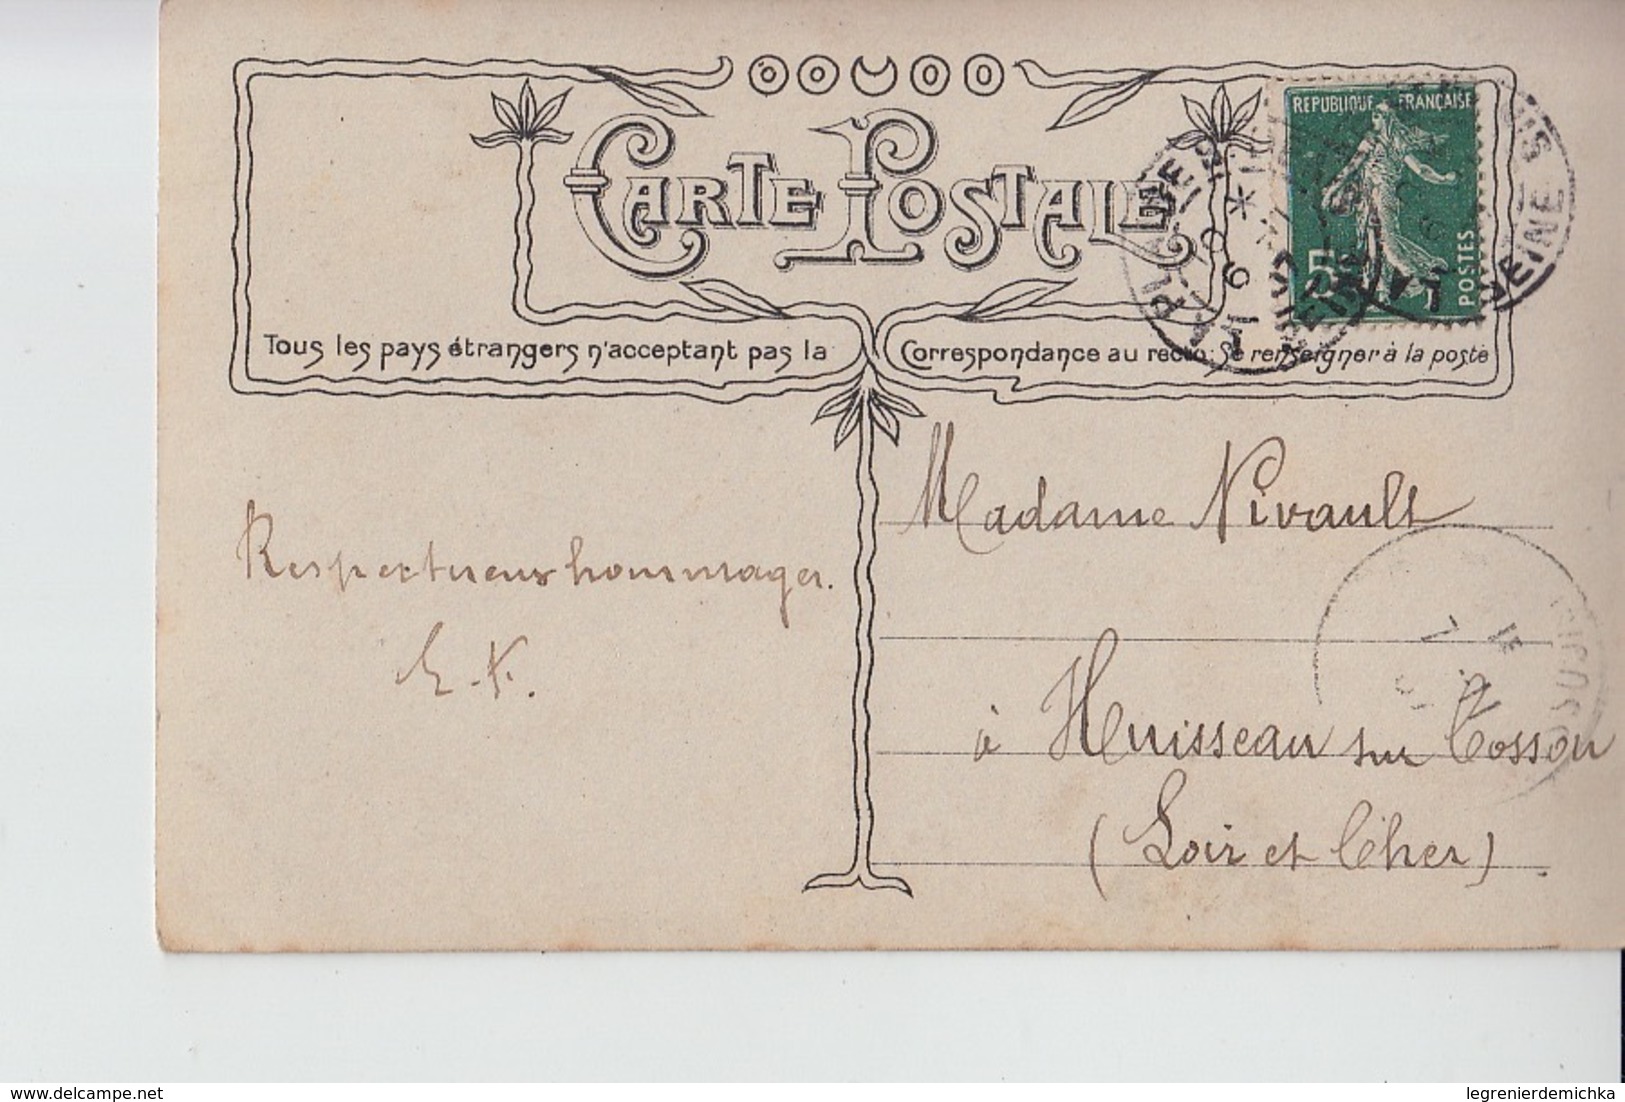 CARTE POSTALE
REPUBLIQUE FRANÇAISE
5
POSTES
Tous les pays étrangers n'acceptant pas la Correspondance au recto: Se renseigner à la poste
Madame Nivault
Respectueux hommages.
E. K.
à Huisseau sur Cosson
(Loir et Cher)
delcampe.net
legrenierdemichka